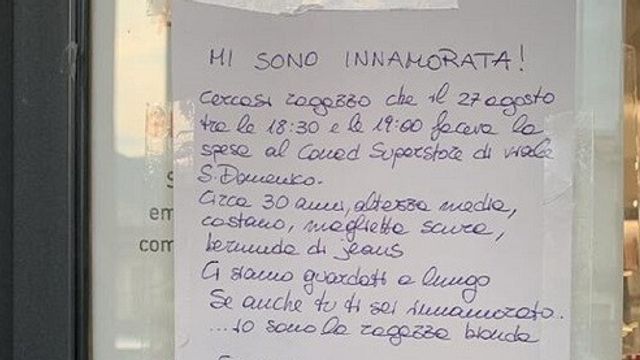 MI SONO INNAMORATA!
Cercasi ragazzo che il 27 agosto
tra le 18:30 e le 19:00 faceva la
spesa al Conad Superstore di viale
S. Domenico.
Circa 30 anni, altezza media,
castano, maglietta scura,
bermuda di jeans
Ci siamo guardati a lungo
Se anche tu ti sei innamorato.
...io sono la ragazza bionda
S
em
com